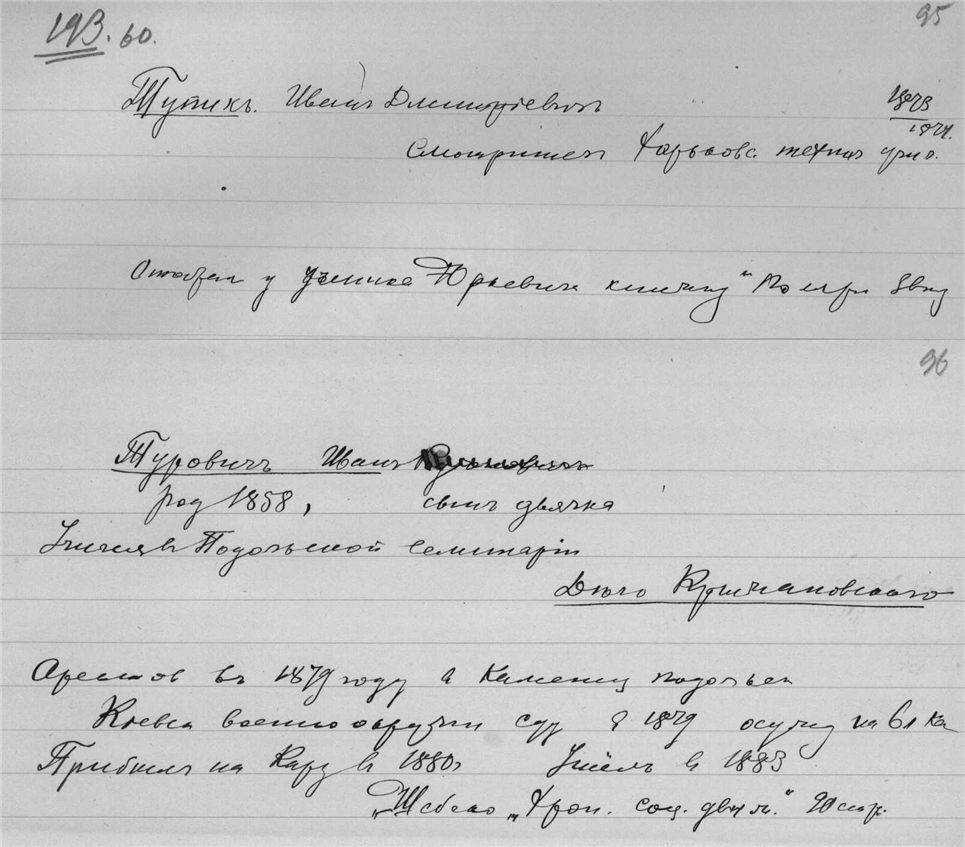 193. 60.
95
Тупикъ. Иванъ Дмитріевичъ
1873
1874.
Смотритель Харьковс. технич учил.
Отобрал у ученика Юркевича книжку "По
96
Туровичъ Иванъ
род 1858, сынъ дьячка
Учился въ Подольской семинаріи
Дѣло Крыжановскаго
Арестов въ 1879 году в Каменец подольск
Киевск военно окружн суд в 1879 осужд на 6 л ка
Прибылъ на Кару в 1880г Умеръ в 1883
„Шебеко „Хрон. соц. движ." стр.